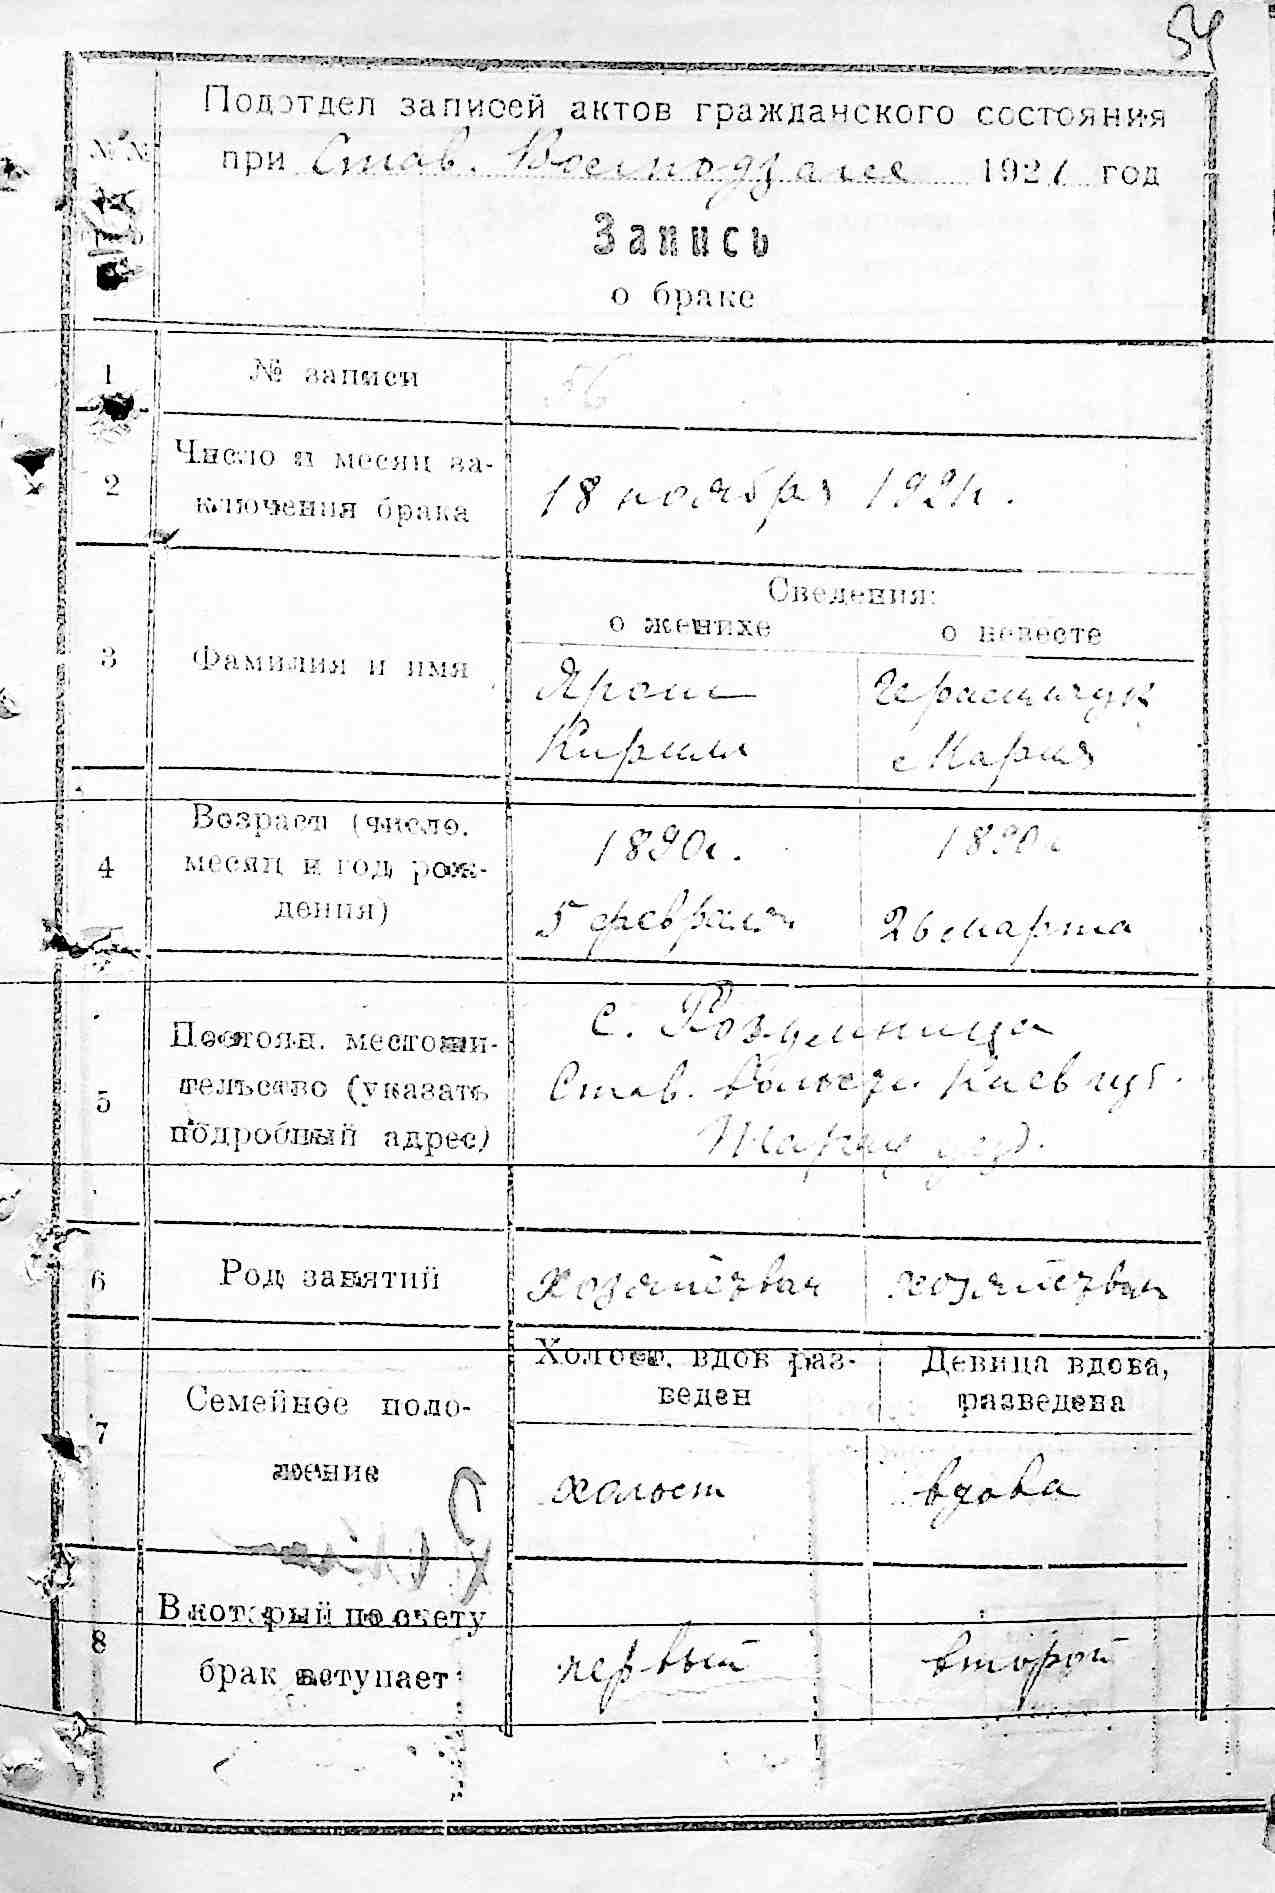 54
Подотдел записей актов гражданского состояния
№№
при Став. 1921 год
Запись
о браке
1 № записи 56
2 Число и месяц за-
ключения брака
18 ноября 1921г.
Сведения:
о женихе о невесте
3 Фамилия и имя
Ярош Герасимчук
Кирилл Мария
4 Возраст (число,
месяц и год рож-
дения)
1890г. 1890г
5 февраля 26 марта
5 Постоян. местожи-
тельство (указать
подробный адрес)
с. Розумница
Став. Киев губ.
уезд.
6 Род занятий
Холост, вдов раз-
веден
Девица вдова,
разведена
7 Семейное поло-
жение
холост вдова
8 В который по счету
брак вступает
первый второй